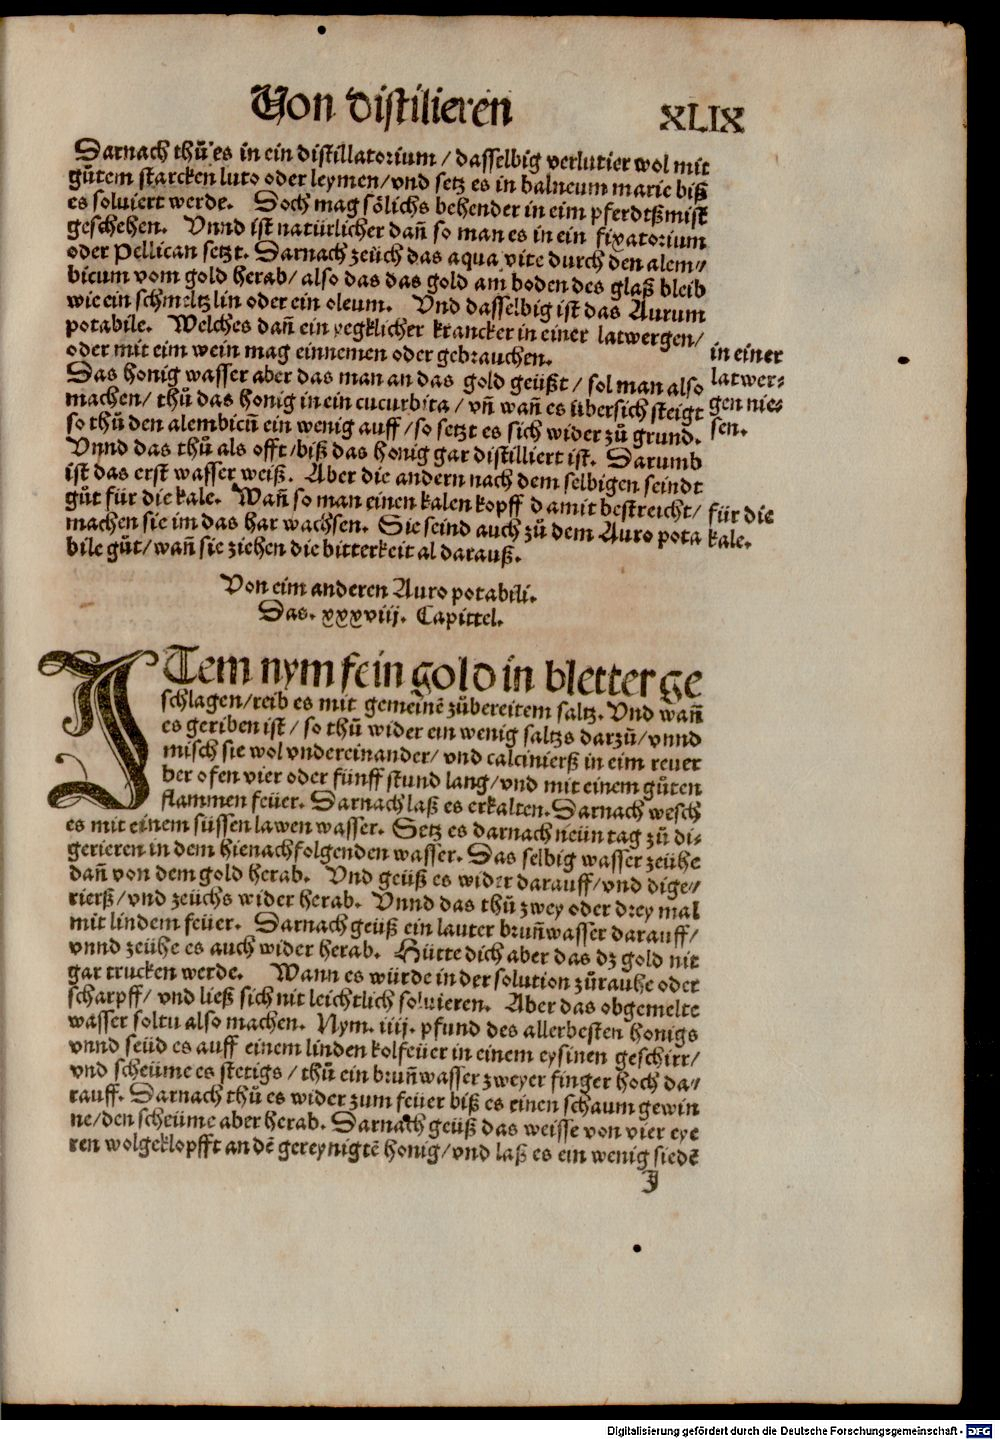 Von distilieren
XLIX
Darnach thů es in ein distillatorium / dasselbig verlutier wol mit
gůtem starcken luto oder leymen / vnd setz es in balneum marie biß
es solviert werde. Doch mag sölichs behender in eim pferdtßmist
geschehen. Vnnd ist natürlicher dañ so man es in ein fixatorium
oder Pellican setzt. Darnach zeüch das aqua vite durch den alem/
bicum vom gold herab / also das das gold am boden des glaß bleib
wie ein schmeltzlin oder ein oleum. Vnd dasselbig ist das Aurum
potabile. Welches dañ ein yegklicher krancker in einer latwergen/
oder mit eim wein mag einnemen oder gebrauchen.
in einer
latwer⸗
gen nie⸗
sen.
Das honig wasser aber das man an das gold geüßt / sol man also
machen / thů das honig in ein cucurbita / vñ wañ es übersich steigt
so thů den alembicũ ein wenig auff / so setzt es sich wider zů grund.
Vnnd das thů als offt / biß das honig gar distilliert ist. Darumb
ist das erst wasser weiß. Aber die andern nach dem selbigen seindt
gůt für die kale. Wañ so man einen kalen kopff damit bestreicht/
machen sie im das har wachsen. Sie seind auch zů dem Auro pota
bile gůt / wañ sie ziehen die bitterkeit al darauß.
für die
kale.
Von eim anderen Auro potabili.
Das. xxxviij. Capittel.
ITem nym fein gold in bletter ge
schlagen / reib es mit gemeinē zůbereitem saltz. Vnd wañ
es geriben ist / so thů wider ein wenig saltzs darzů / vnnd
misch sie wol vndereinander / vnd calcinierß in eim rever
ber ofen vier oder fünff stund lang / vnd mit einem gůten
flammen feüer. Darnach laß es erkalten. Darnach wesch
es mit einem süssen lawen wasser. Setz es darnach neün tag zů di⸗
gerieren in dem hienachfolgenden wasser. Das selbig wasser zeühe
dañ von dem gold herab. Vnd geüß es wider darauff / vnd dige/
rierß / vnd zeüchs wider herab. Vnnd das thů zwey oder drey mal
mit lindem feüer. Darnach geüß ein lauter brunñwasser darauff/
vnnd zeühe es auch wider herab. Hütte dich aber das dz gold nit
gar trucken werde. Wann es würde in der solution zů rauhe oder
scharpff / vnd ließ sich nit leichtlich solvieren. Aber das obgemelte
wasser soltu also machen. Nym. iiij. pfund des allerbesten honigs
vnnd seüd es auff einem linden kolfeüer in einem eysinen geschirr/
vnd scheüme es stetigs / thů ein brunñwasser zweyer finger hoch da/
rauff. Darnach thů es wider zum feüer biß es einen schaum gewin
ne / den scheüme aber herab. Darnach geüß das weisse von vier eye
ren wolgeklopfft an dē gereynigtē honig / vnd laß es ein wenig siedē
J
Digitalisierung gefördert durch die Deutsche Forschungsgemeinschaft - DFG